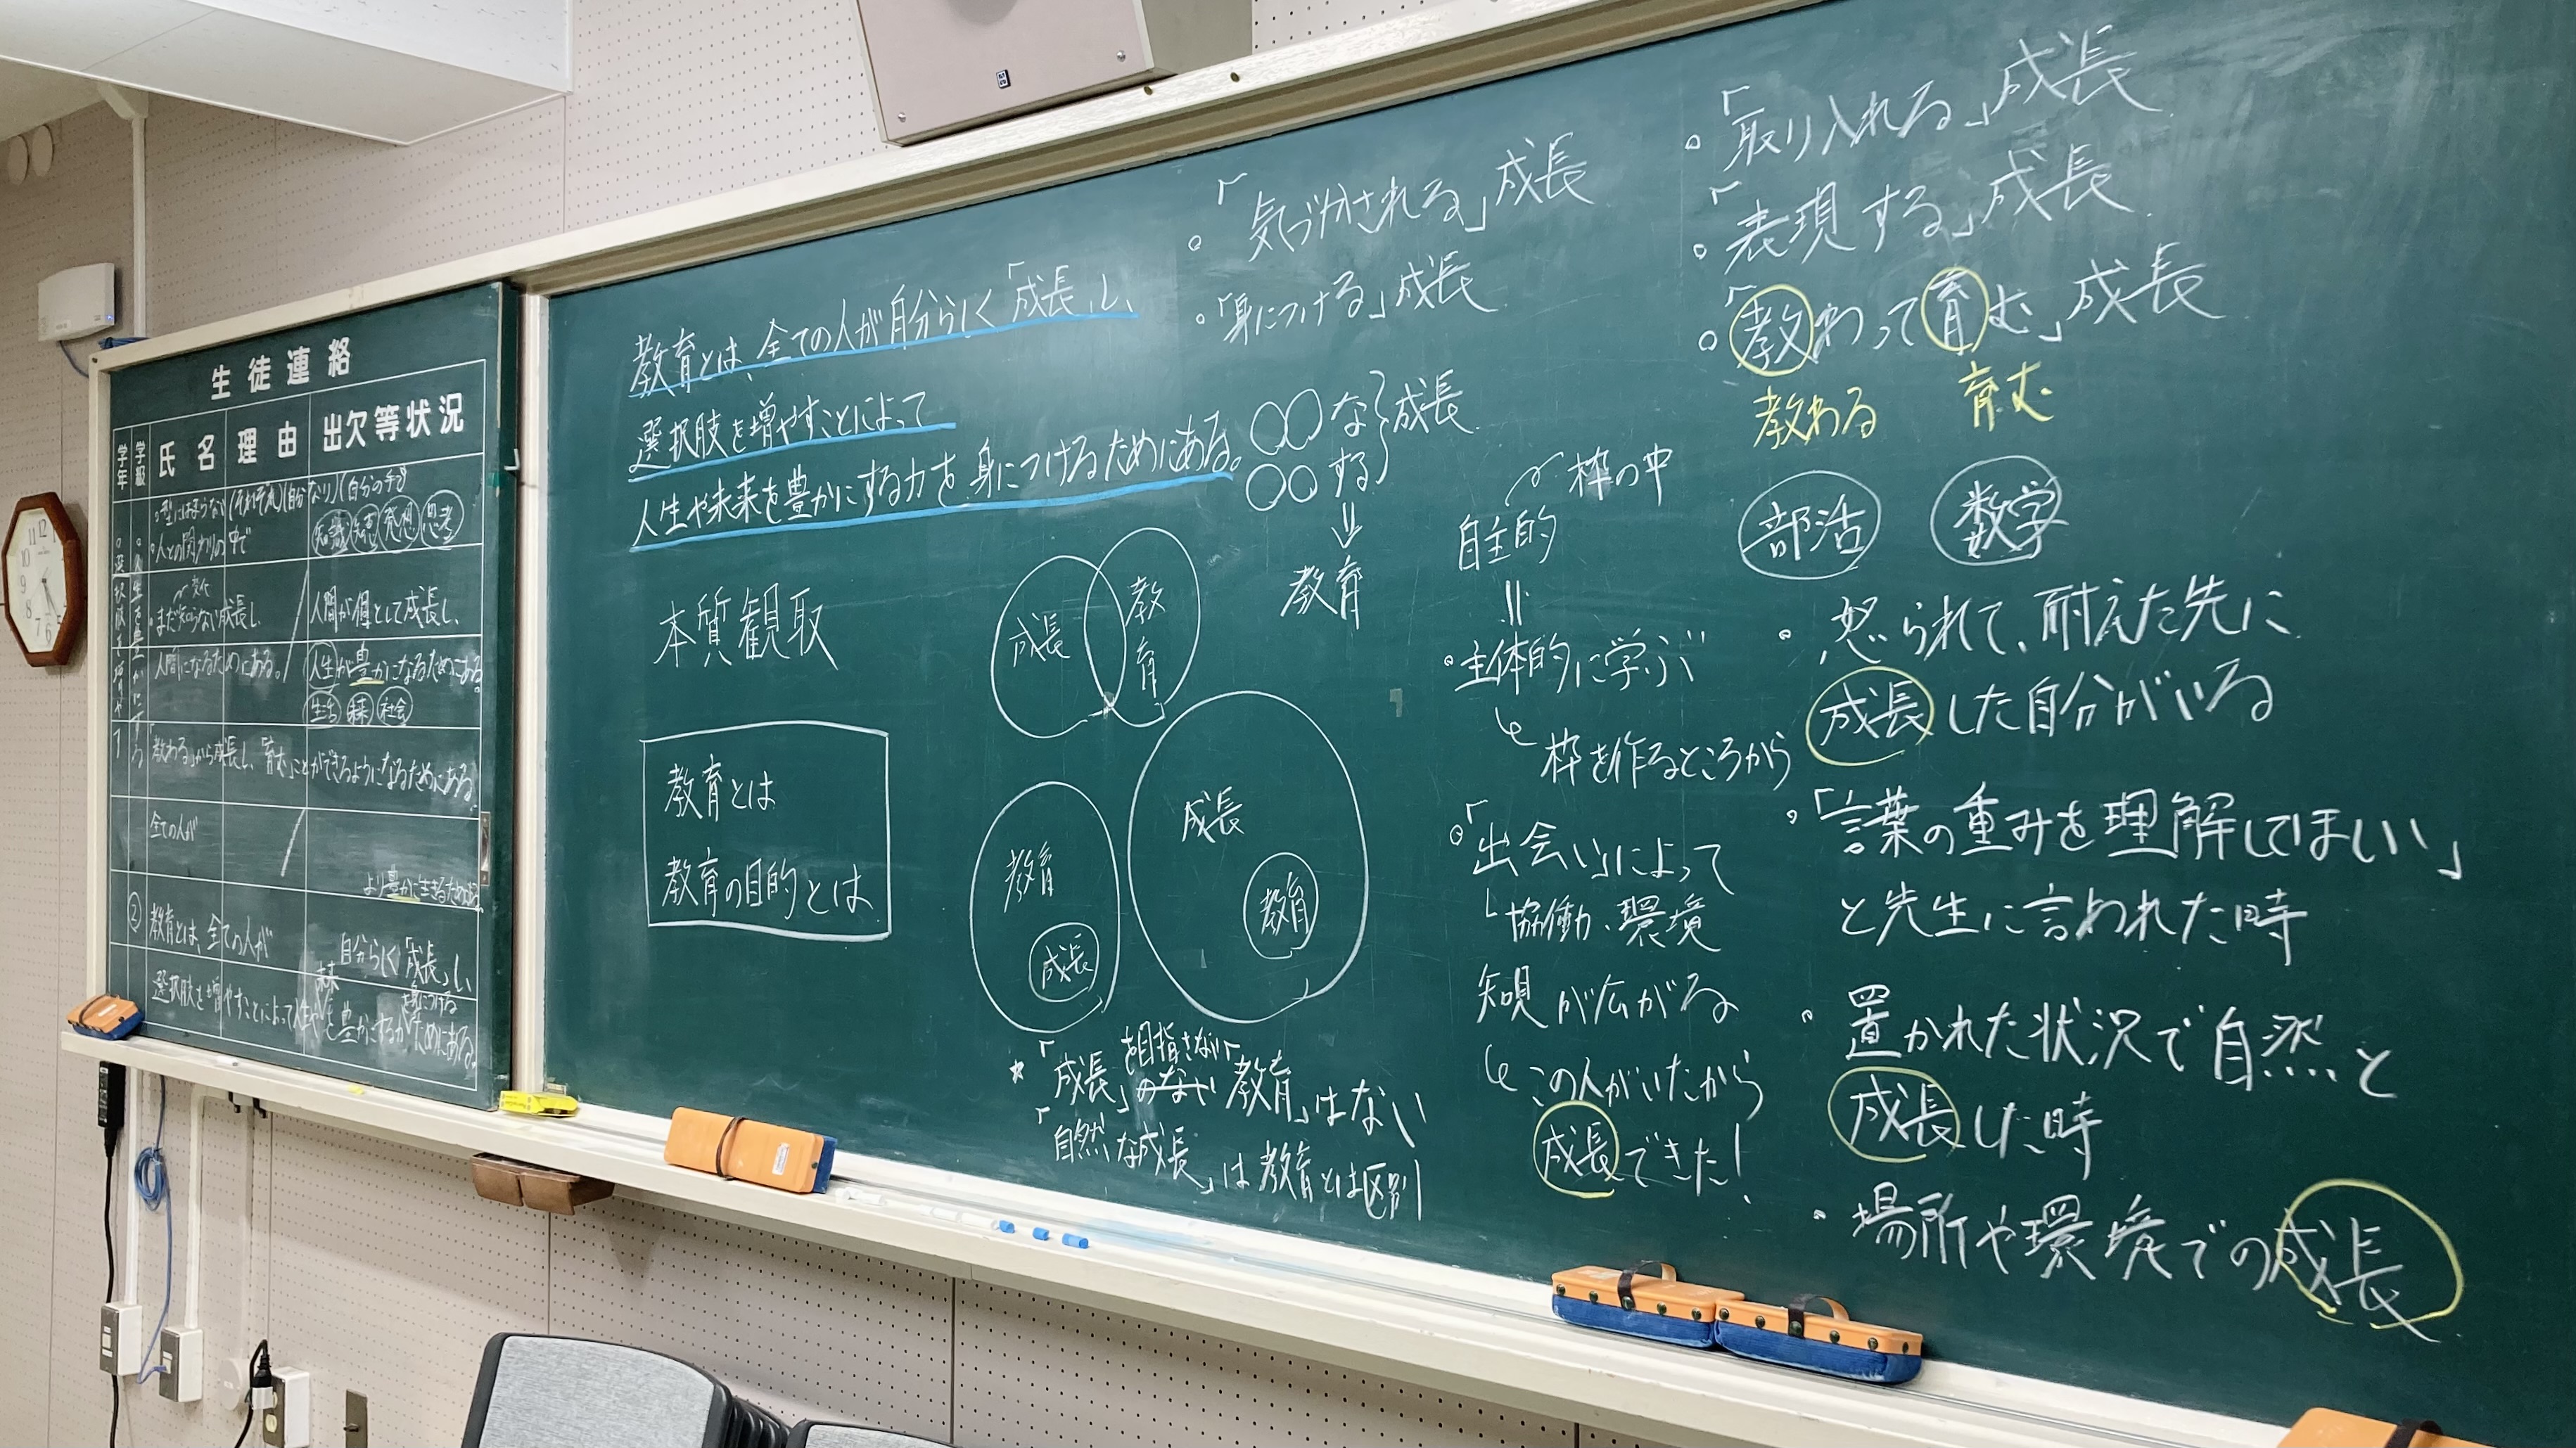 生徒連絡
学年 学級 氏名 理由 出欠等状況
。型にはまらない(それぞれ)(自分なり)(自分の手で
。人との関わりの中で
知識 発想 思考
。選択肢を増やして
。人生を豊かにする
。まだ知らない成長し、
人間が個として成長し、
人間になるためにある。
人生が豊かになるためにある。
生活 未来 社会
「教わる」から成長し、「育む」ことができるようになるためにある。
全ての人が
より豊かに生きるためにある
② 教育とは、全ての人が 自分らしく「成長」し、
選択肢を増やすことによって人生や未来を豊かにする力を身につけるためにある。
教育とは、全ての人が自分らしく「成長」し、
選択肢を増やすことによって
人生や未来を豊かにする力を身につけるためにある。
本質観取
教育とは
教育の目的とは
成長 教育
教育 成長
成長 教育
* 「成長」のない を目指さない「教育」はない
「自然な成長」は教育とは区別
。「気づかされる」成長
。「身につける」成長
○○な
○○する
成長
⇓
教育
枠の中
自主的
||
。主体的に学ぶ
↳ 枠を作るところから
。「出会い」によって
└ 協働・環境
知見が広がる
↳ この人がいたから
成長できた!
。「取り入れる」成長
。「表現する」成長
。「教わって育む」成長
教わる 育む
部活 数学
・怒られて、耐えた先に
成長した自分がいる
・「言葉の重みを理解してほしい」
と先生に言われた時
・置かれた状況で自然と
成長した時
・場所や環境での成長